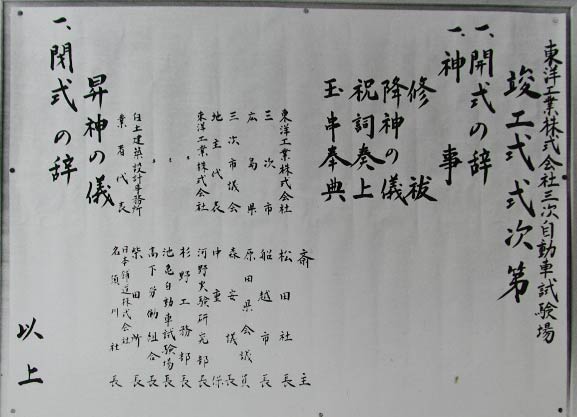 東洋工業株式会社三次自動車試験場
竣工式式次第
一、開式の辞
一、神事
修祓
降神の儀
祝詞奏上
玉串奉典
斎主
東洋工業株式会社 松田社長
三次市 船越市長
広島県 原田県会議員
三次市議会 森安議長
地主代表 中重保
東洋工業株式会社 河野実験研究部長
〃 杉野工務部長
〃 池亀自動車試験場長
〃 高下労働組合長
住土建築設計事務所 柴田所長
業者代表 日本鋪道株式会社 名須川社長
昇神の儀
一、閉式の辞
以上